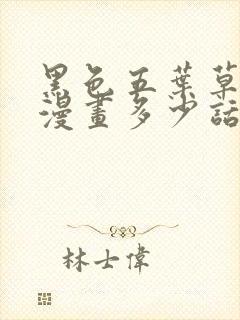 黑色五葉草
漫畫多少話
林士偉